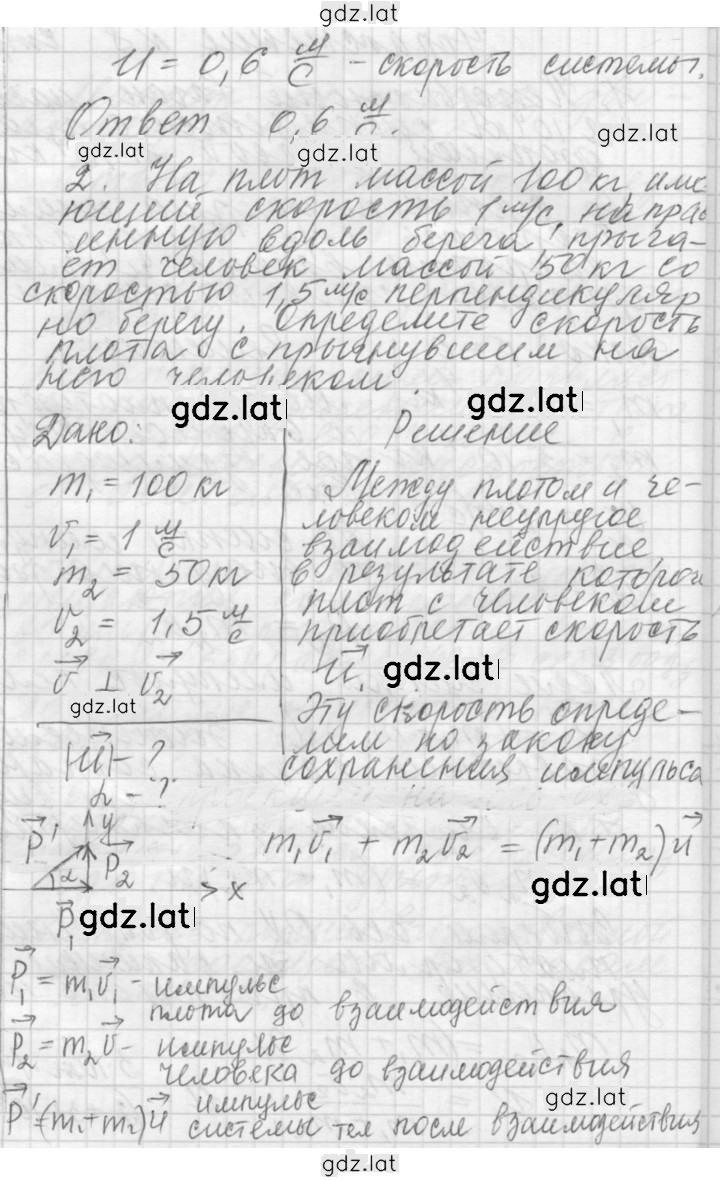 gdz.lat
U = 0,6 м/с - скорость системы.
Ответ 0,6 м/с.
gdz.lat
gdz.lat
gdz.lat
2. На плот массой 100 кг, име-
ющий скорость 1 м/с, направ
ленную вдоль берега прыга-
ет человек массой 50 кг со
скоростью 1,5 м/с перпендикуляр
но берегу. Определите скорость
плота с прыгнувшим на
него человеком.
gdz.lat
gdz.lat
Дано:
m₁ = 100 кг
v₁ = 1 м/с
m₂ = 50 кг
v₂ = 1,5 м/с
v⃗ ⊥ v⃗₂
gdz.lat
|u⃗| - ?
α - ?
Решение
Между плотом и че-
ловеком неупругое
взаимодействие,
в результате которой
плот с человеком
приобретает скорость
u⃗.
gdz.lat
Эту скорость опреде-
лим по закону
сохранения импульса
m₁v⃗₁ + m₂v⃗₂ = (m₁+m₂)u⃗
gdz.lat
y
P⃗'
P⃗₂
α
x
P⃗₁
gdz.lat
P⃗₁ = m₁v⃗₁ - импульс
плота до взаимодействия
P⃗₂ = m₂v⃗ - импульс
человека до взаимодействия
P⃗' = (m₁+m₂)u⃗ импульс
системы тел после взаимодействия
gdz.lat
gdz.lat